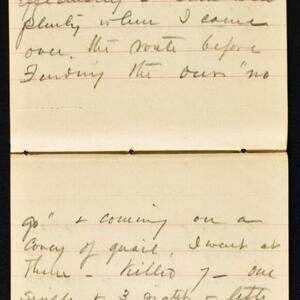 plenty when I came
over, the route before
Finding the ours "no
go" & coming on a
Covey of quail. I went at
them - Killed 7 - one
single & 3 rights - lefts